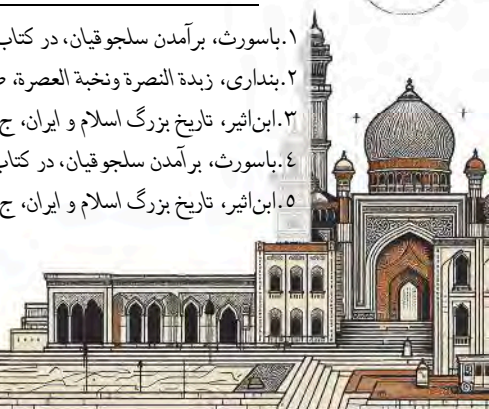 ۱.باسورث، برآمدن سلجوقیان، در کتاب
۲.بنداری، زبدة النصرة ونخبة العصرة،
۳.ابن‌اثیر، تاریخ بزرگ اسلام و ایران، ج
٤.باسورث، برآمدن سلجوقیان، در کتاب
۵.ابن‌اثیر، تاریخ بزرگ اسلام و ایران، ج